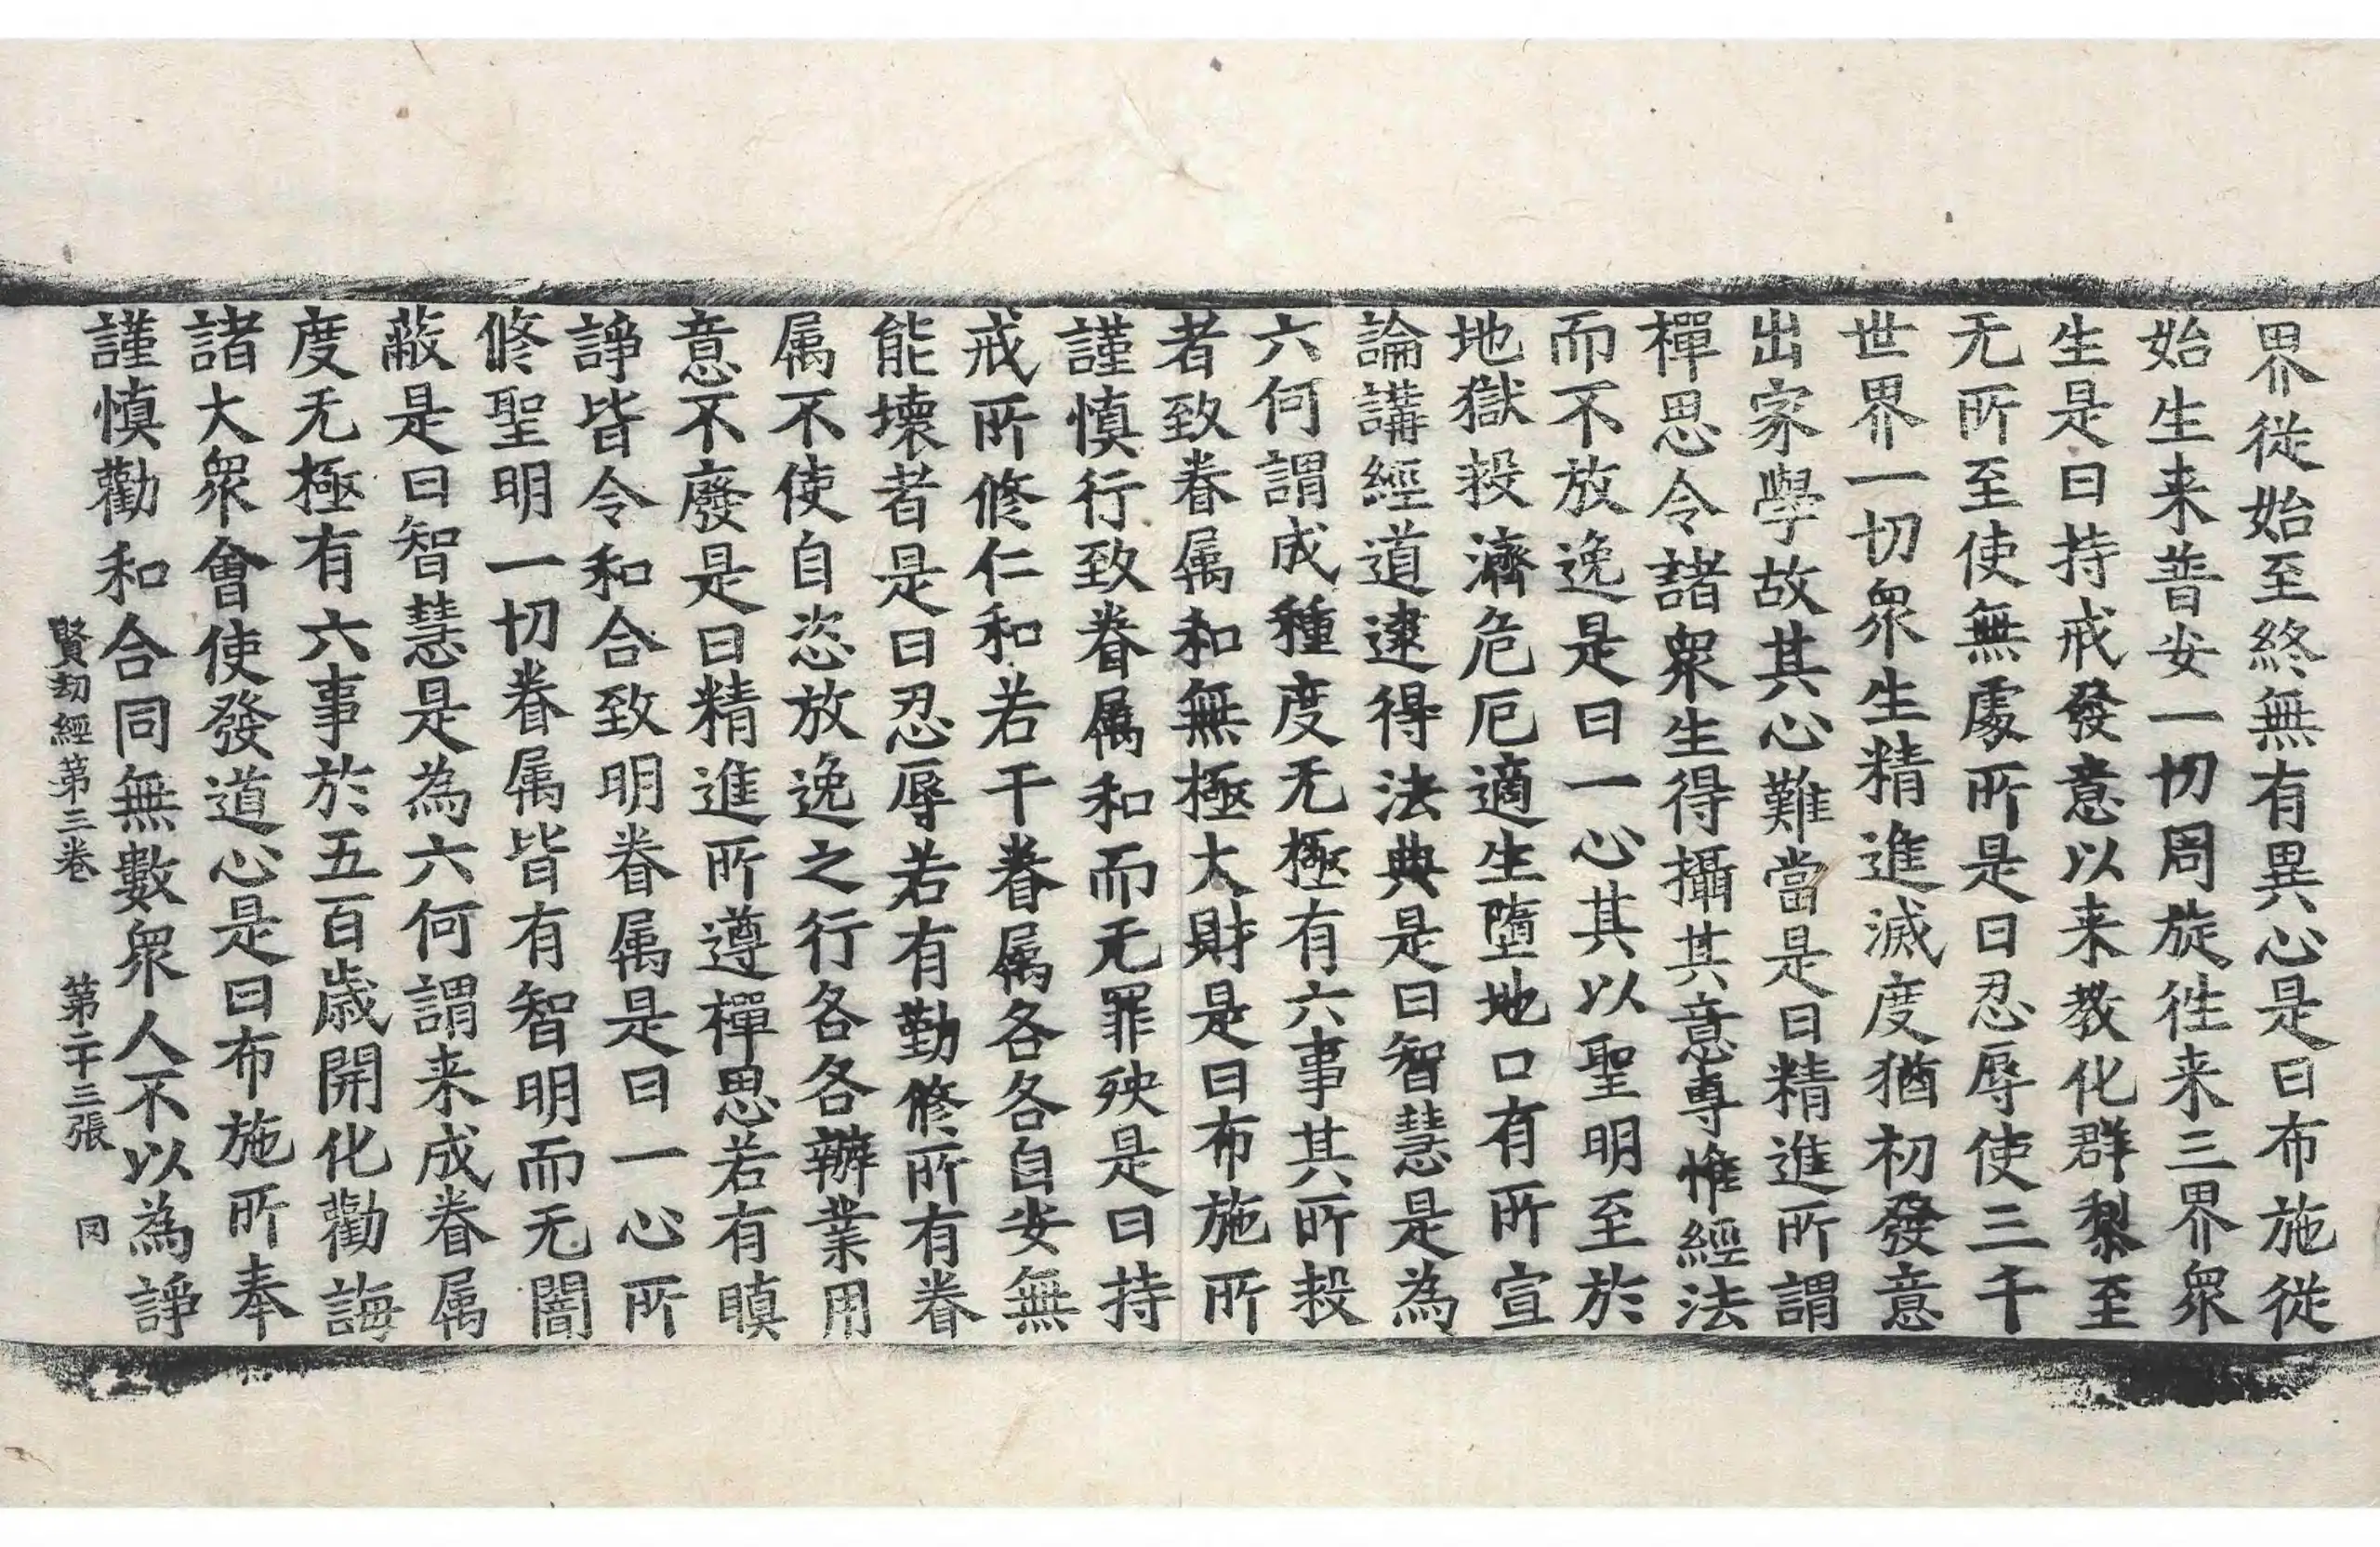 界從始至終無有異心是曰布施從
始生来普安一切周旋徃来三界衆
生是曰持戒發意以来教化群梨至
无所至使無處所是曰忍辱使三千
世界一切衆生精進滅度猶初發意
出家學故其心難當是曰精進所謂
禪思令諸衆生得攝其意專惟經法
而不放逸是曰一心其以聖明至於
地獄投濟危厄適生墮地口有所宣
論講經道逮得法典是曰智慧是為
六何謂成種度无極有六事其所投
者致眷属和無極大財是曰布施所
謹慎行致眷属和而无罪殃是曰持
戒所修仁和若干眷属各各自安無
能壊者是曰忍辱若有勤修所有眷
属不使自恣放逸之行各各辦業用
意不廢是曰精進所遵禪思若有瞋
諍皆令和合致明眷属是曰一心所
修聖明一切眷属皆有智明而无闇
蔽是曰智慧是為六何謂来成眷属
度无極有六事於五百歳開化勸誨
諸大衆會使發道心是曰布施所奉
謹慎勸和合同無數衆人不以為諍
賢劫經第三卷 第二十三張 同